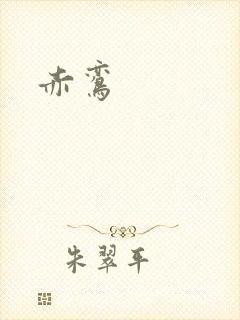 赤鸾
朱翠平